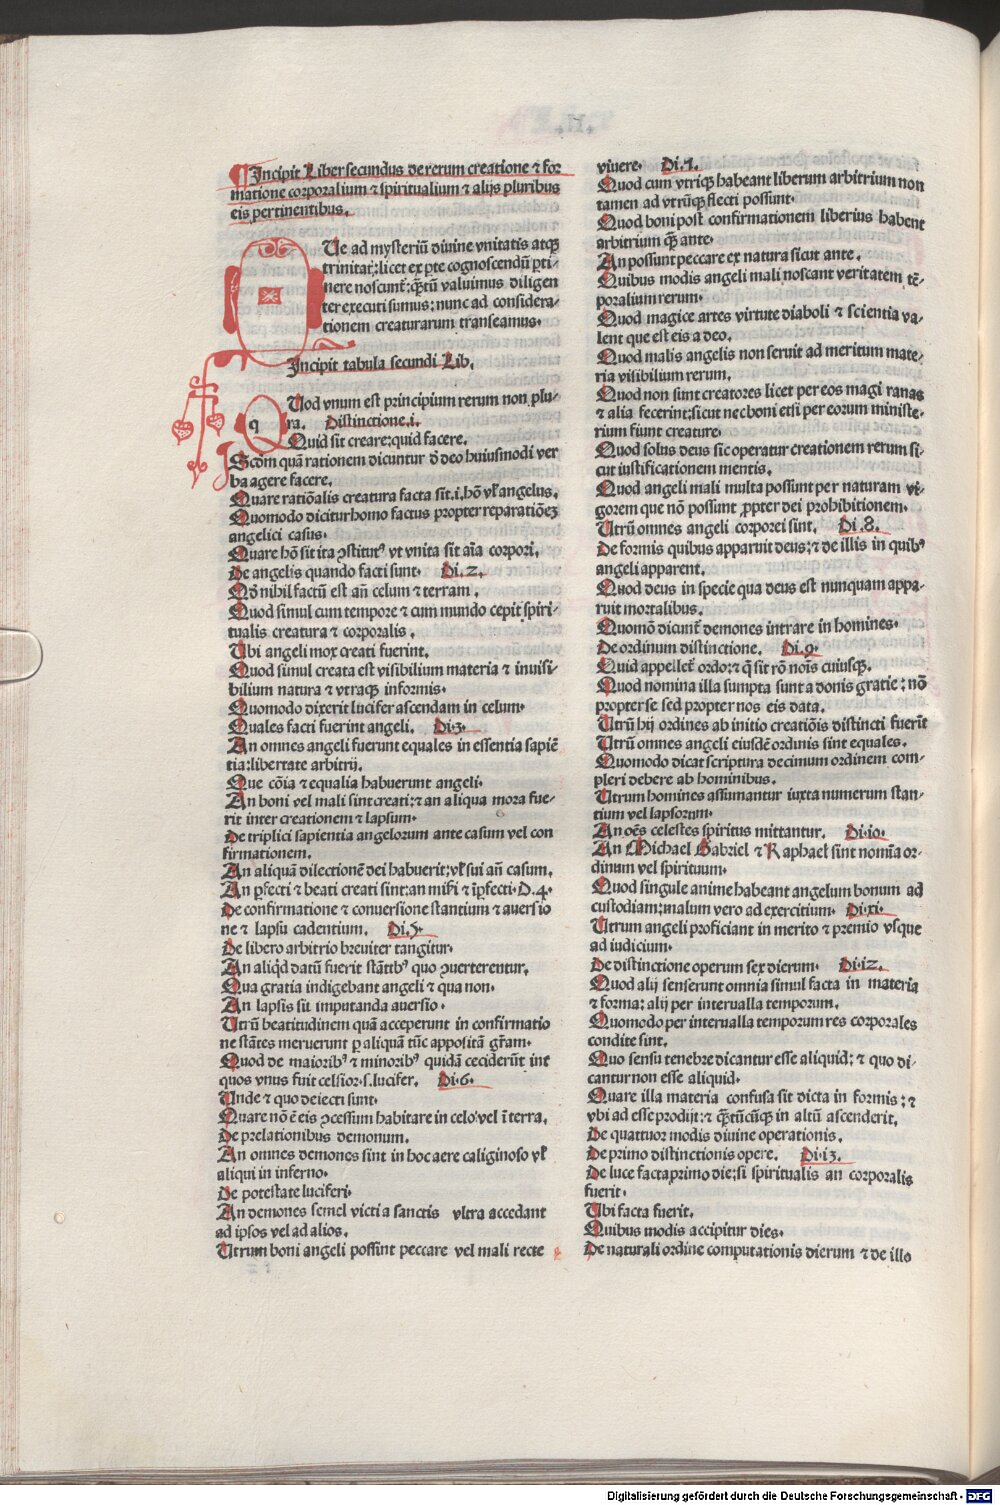 ¶Incipit Liber secundus de rerum creatione ⁊ for
matione corporalium ⁊ spiritualium ⁊ alijs pluribus
eis pertinentibus.
Que ad mysteriū diuine vnitatis atqꝫ
trinitatꝭ: licet ex ꝑte cognoscendū ꝑti-
nere noscunt᷑: qͣꝫtū valuimus diligen
ter executi sumus: nunc ad considera-
tionem creaturarum transeamus.
Incipit tabula secundi Lib.
QUod vnum est principium rerum non plu-
ra. Distinctione.i.
Quid sit creare: quid facere.
Scd̄m quā rationem dicuntur d̄ deo huiusmodi ver
ba agere facere.
Quare ratiōalis creatura facta sit.i.hō vꝉ angelus.
Quomodo dicitur homo factus propter reparatiōeꝫ
angelici casus.
Quare hō sit ita ꝯstitutꝰ vt vnita sit aīa corpori.
De angelis quando facti sunt. Di.2.
Qd̄ nihil factū est an̄ celum ⁊ terram.
Quod simul cum tempore ⁊ cum mundo cepit spiri-
tualis creatura ⁊ corporalis.
Ubi angeli mox creati fuerint.
Quod simul creata est visibilium materia ⁊ inuisi-
bilium natura ⁊ vtraqꝫ informis.
Quomodo dixerit lucifer ascendam in celum.
Quales facti fuerint angeli. Di.3.
An omnes angeli fuerunt equales in essentia sapiē
tia: libertate arbitrij.
Que cōia ⁊ equalia habuerunt angeli.
An boni vel mali sint creati: ⁊ an aliqua mora fue-
rit inter creationem ⁊ lapsum.
De triplici sapientia angelorum ante casum vel con
firmationem.
An aliquā dilectionē dei habuerit: vꝉ sui an̄ casum.
An ꝑfecti ⁊ beati creati sint: an miẜi ⁊ īꝑfecti. D.4.
De confirmatione ⁊ conuersione stantium ⁊ auersio
ne ⁊ lapsu cadentium. Di.5.
De libero arbitrio breuiter tangitur.
An aliqͥd datū fuerit stātibꝰ quo ꝯuerterentur.
Qua gratia indigebant angeli ⁊ qua non.
An lapsis sit imputanda auersio.
Utrū beatitudinem quā acceperunt in confirmatio
ne stātes meruerunt ꝑ aliquā tūc appositā gr̄am.
Quod de maioribꝰ ⁊ minoribꝰ quidā ceciderūt int
quos vnus fuit celsior.s.lucifer. Di.6.
Unde ⁊ quo deiecti sunt.
Quare nō ē eis ꝯcessum habitare in celo vel ī terra.
De prelationibus demonum.
An omnes demones sint in hoc aere caliginoso vꝉ
aliqui in inferno.
De potestate luciferi.
An demones semel victi a sanctis vltra accedant
ad ipsos vel ad alios.
Utrum boni angeli possint peccare vel mali recte
viuere. Di.7.
Quod cum vtriqꝫ habeant liberum arbitrium non
tamen ad vtrūqꝫ flecti possunt.
Quod boni post confirmationem liberius habent
arbitrium qͣꝫ ante.
An possunt peccare ex natura sicut ante.
Quibus modis angeli mali noscant veritatem tē-
poralium rerum.
Quod magice artes virtute diaboli ⁊ scientia va-
lent que est eis a deo.
Quod malis angelis non seruit ad meritum mate-
ria visibilium rerum.
Quod non sunt creatores licet per eos magi ranas
⁊ alia fecerint: sicut nec boni etsi per eorum ministe-
rium fiunt creature.
Quod solus deus sic operatur creationem rerum si-
cut iustificationem mentis.
Quod angeli mali multa possunt per naturam vi-
gorem que nō possunt ꝓpter dei prohibitionem.
Utrū omnes angeli corporei sint. Di.8.
De formis quibus apparuit deus: ⁊ de illis in quibꝰ
angeli apparent.
Quod deus in specie qua deus est nunquam appa-
ruit mortalibus.
Quomō dicunt᷑ demones intrare in homines.
De ordinum distinctione. Di.9.
Quid appellet᷑ ordo: ⁊ q̄ sit rō noīs cuiusqꝫ.
Quod nomina illa sumpta sunt a donis gratie: nō
propter se sed propter nos eis data.
Utrū hij ordines ab initio creatiōis distincti fuerīt
Utrū omnes angeli eiusdē ordinis sint equales.
Quomodo dicat scriptura decimum ordinem com-
pleri debere ab hominibus.
Utrum homines assumantur iuxta numerum stan-
tium vel lapsorum.
An oēs celestes spiritus mittantur. Di.io.
An Michael Gabriel ⁊ Raphael sint nomīa or-
dinum vel spirituum.
Quod singule anime habeant angelum bonum ad
custodiam: malum vero ad exercitium. Di.xi.
Utrum angeli proficiant in merito ⁊ premio vsque
ad iudicium.
De distinctione operum sex dierum. Di.i2.
Quod alij senserunt omnia simul facta in materia
⁊ forma: alij per interualla temporum.
Quomodo per interualla temporum res corporales
condite sint.
Quo sensu tenebre dicantur esse aliquid: ⁊ quo di-
cantur non esse aliquid.
Quare illa materia confusa sit dicta in formis: ⁊
vbi ad esse prodijt: ⁊ qͣꝫtūcūqꝫ in altū ascenderit.
De quattuor modis diuine operationis.
De primo distinctionis opere. Di.i3.
De luce facta primo die: si spiritualis an corporalis
fuerit.
Ubi facta fuerit.
Quibus modis accipitur dies.
De naturali ordine computationis dierum ⁊ de illo
Digitalisierung gefördert durch die Deutsche Forschungsgemeinschaft - DFG